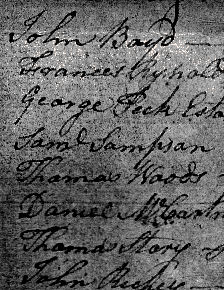 John Boyd —
Frances Rynold
George Peck Esta
Saml Sampson
Thomas Woods -
Daniel McCartn
Thomas Story -
John Richey —